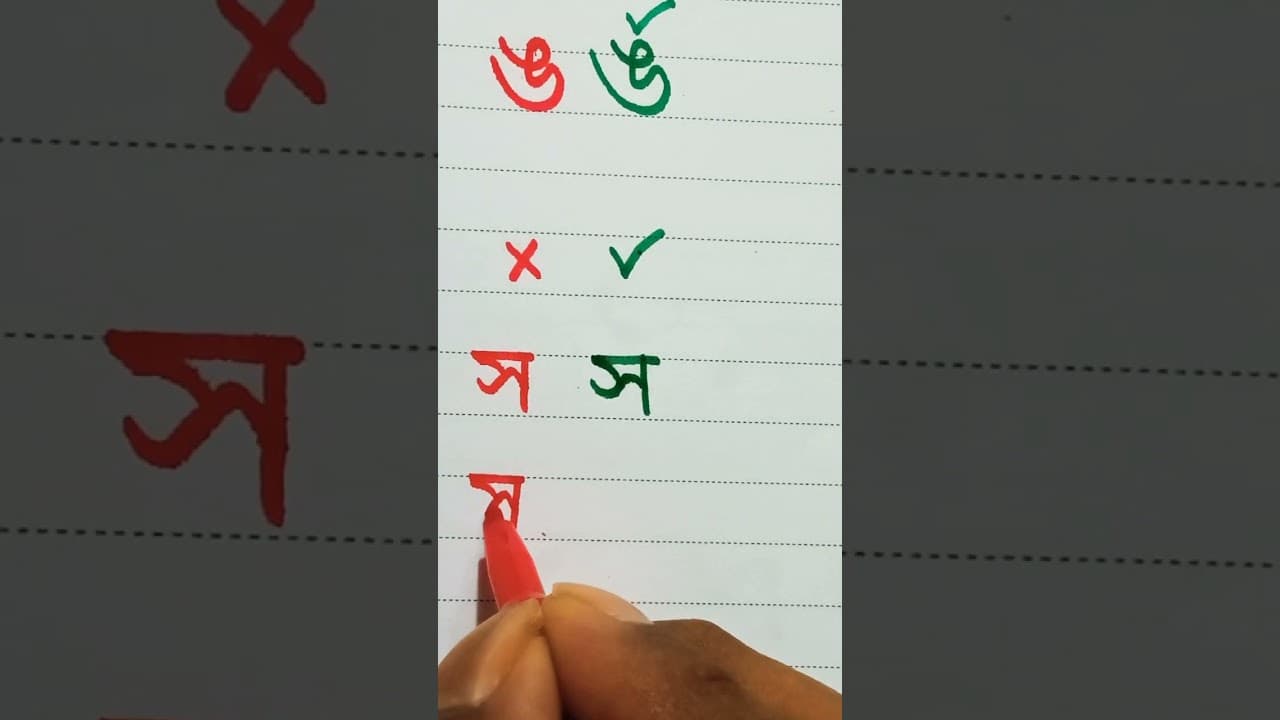 ঙ ঙ
স স